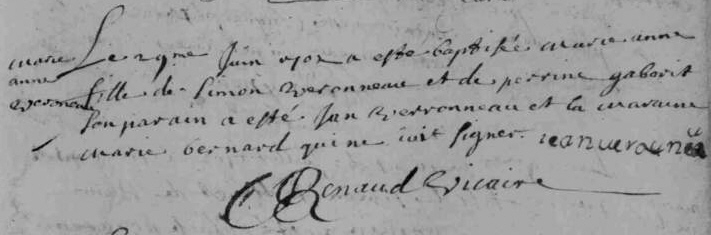 marie
anne
veronneau
Le 29me Juin 1701 a esté baptisée marie anne
fille de Simon veronneau et de perrine gaborit
son parain a esté Jan verronneau et la maraine
marie bernard qui ne soit signer. ieanveronneau
C Renaud vicaire